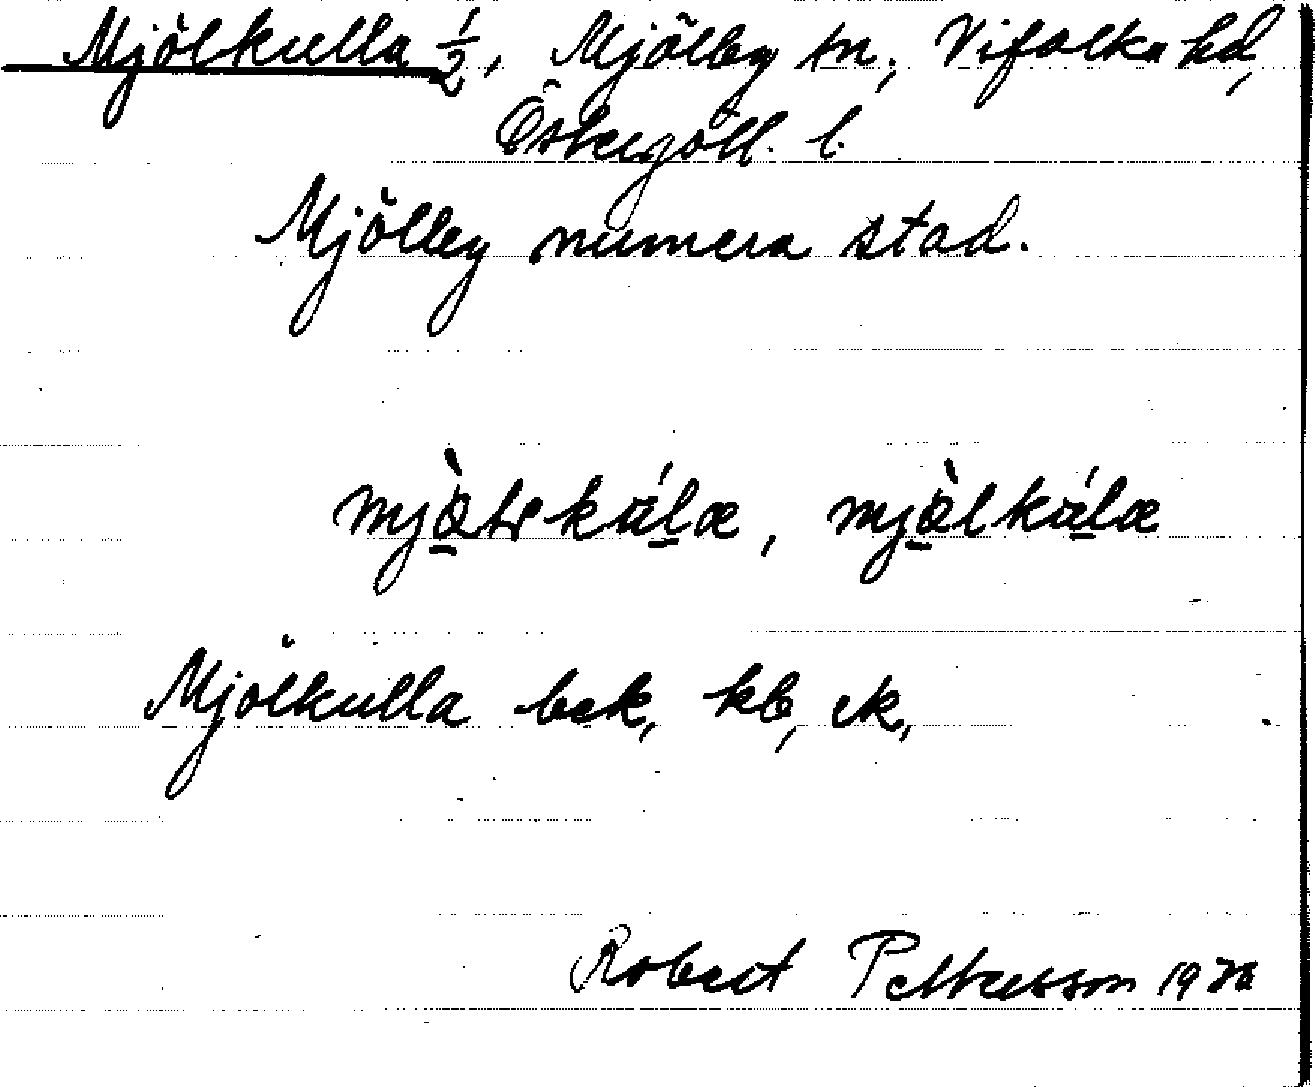 Mjölkulla 1/2, Mjölby sn, Vifolka hd,
Östergötl. l.
Mjölby numera stad.
Mjölkulla bek, kb, ek,
Robert Pettersson